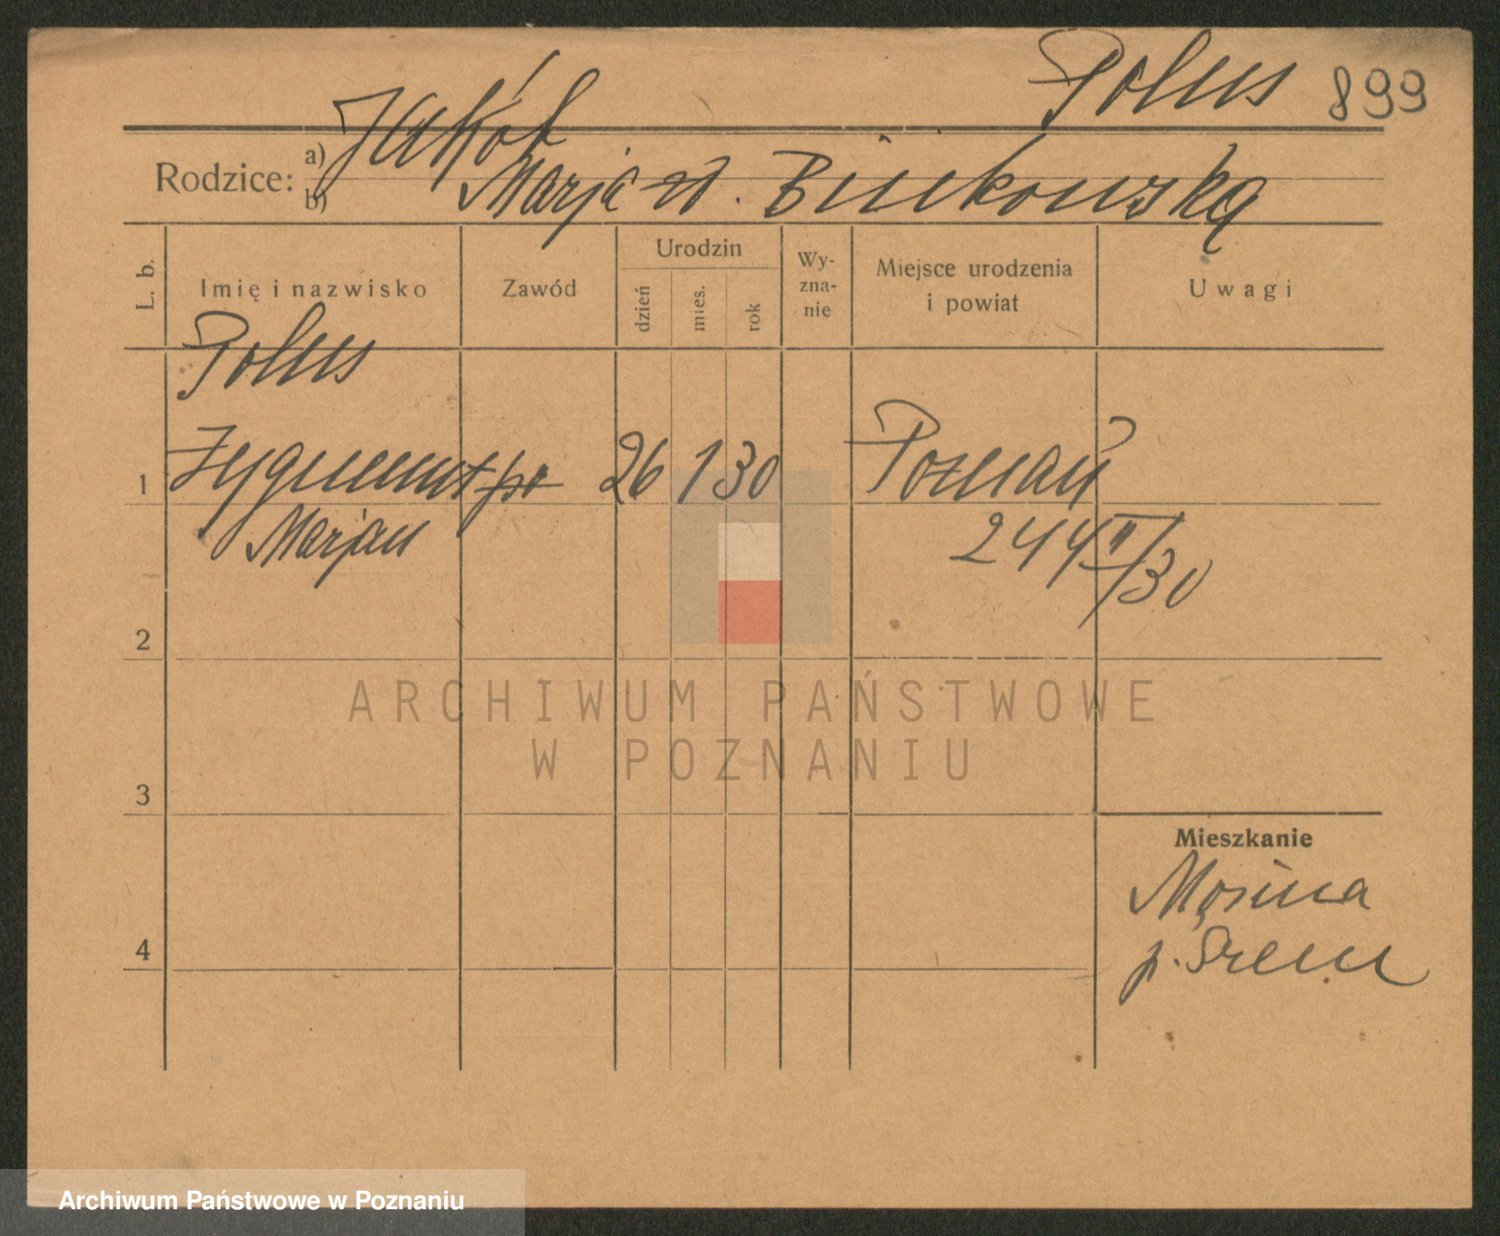 Polus 899
Rodzice: a) Jakób
b) Marja zd. Binkowska
L. b.
Imię i nazwisko
Zawód
Urodzin
dzień
mies.
rok
Wy-
zna-
nie
Miejsce urodzenia
i powiat
Uwagi
Polus
1 Zygmunt 26 1 30 Poznań
Marjan 244 II/30
2
3
4
Mieszkanie
Mosina
p. Śrem
ARCHIWUM PAŃSTWOWE
W POZNANIU
Archiwum Państwowe w Poznaniu